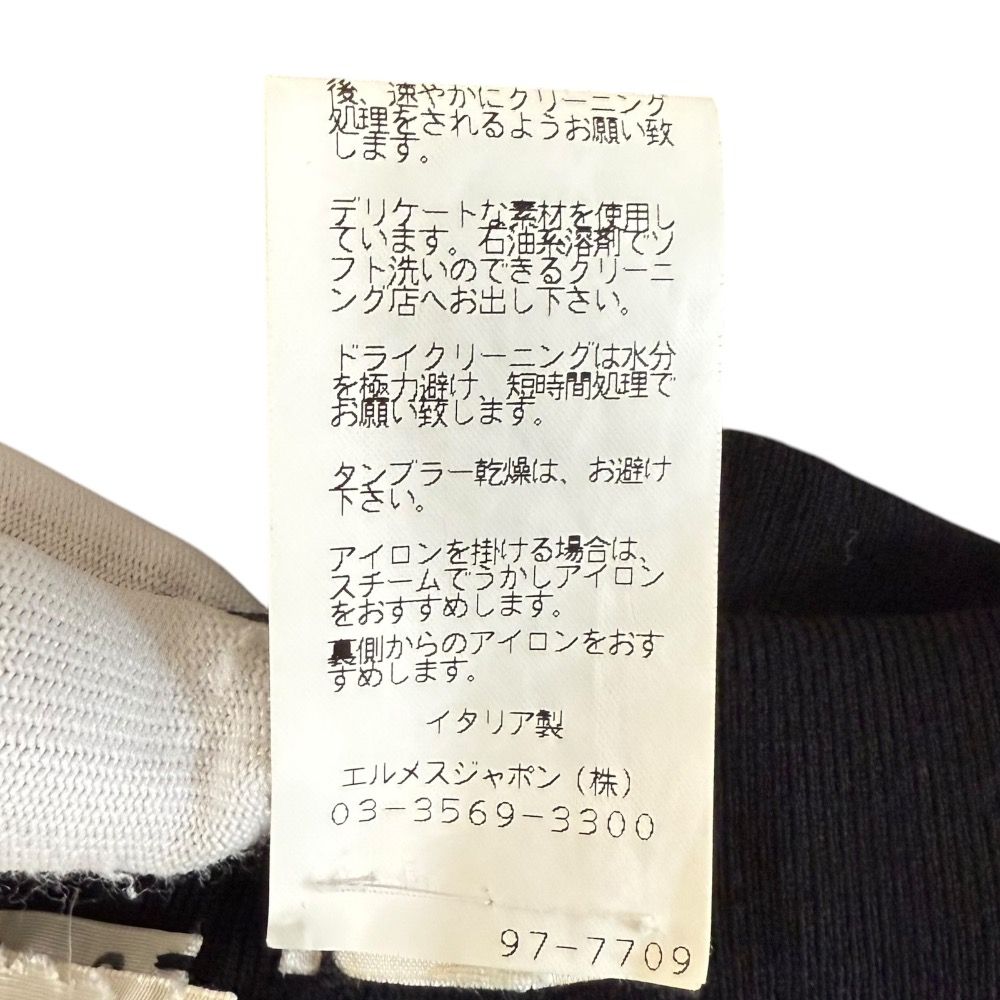 後、速やかにクリーニング
処理をされるようお願い致
します。
デリケートな素材を使用し
ています。石油系溶剤でソ
フト洗いのできるクリーニ
ング店へお出し下さい。
ドライクリーニングは水分
を極力避け、短時間処理で
お願い致します。
タンブラー乾燥は、お避け
下さい。
アイロンを掛ける場合は、
スチームでうかしアイロン
をおすすめします。
裏側からのアイロンをおす
すめします。
イタリア製
エルメスジャポン(株)
03-3569-3300
97-7709